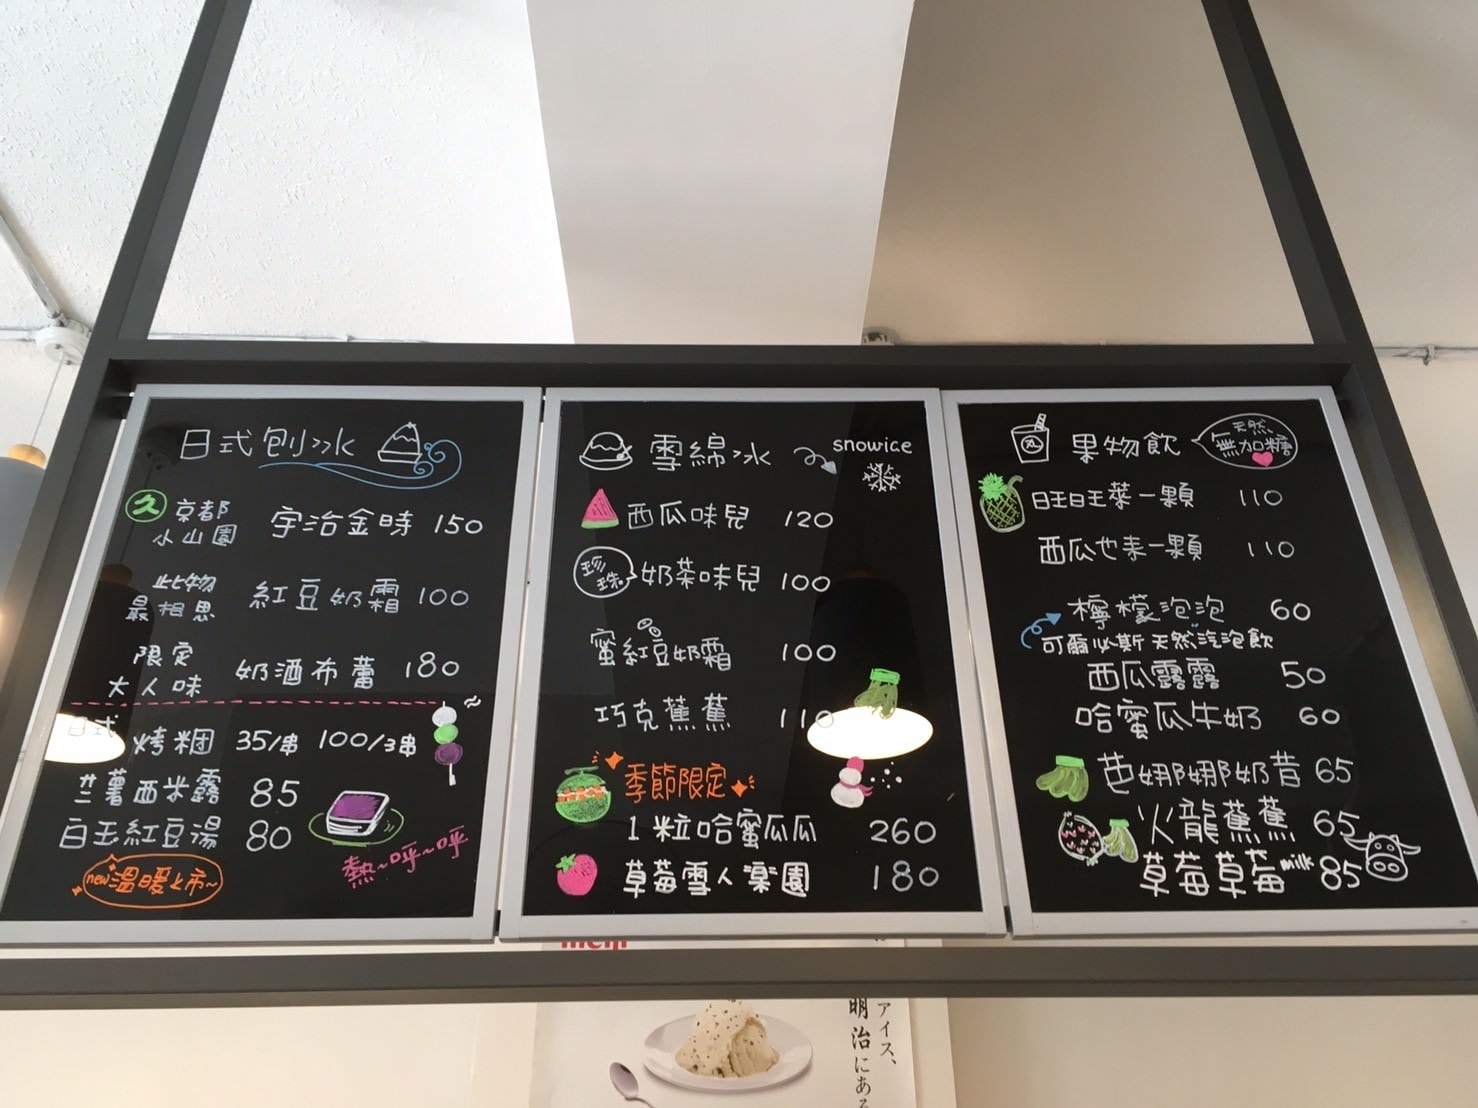 日式刨冰
久 京都 小山園 宇治金時 150
此物 最相思 紅豆奶霜 100
限定 大人味 奶酒布蕾 180
日式 烤糰 35/串 100/3串
芋薯西米露 85
白玉紅豆湯 80
new溫暖上市~
熱~呼~呼
雪綿冰 snowice
西瓜味兒 120
珍珠 奶茶味兒 100
蜜紅豆奶霜 100
巧克蕉蕉 110
季節限定
1粒哈蜜瓜瓜 260
草莓雪人樂園 180
果物飲 天然、無加糖
旺旺萊一顆 110
西瓜也來一顆 110
檸檬泡泡 60
可爾必斯 天然汽泡飲
西瓜露露 50
哈蜜瓜牛奶 60
芭娜娜奶昔 65
火龍蕉蕉 65
草莓草莓milk 85
meiji
アイス、
明治にある